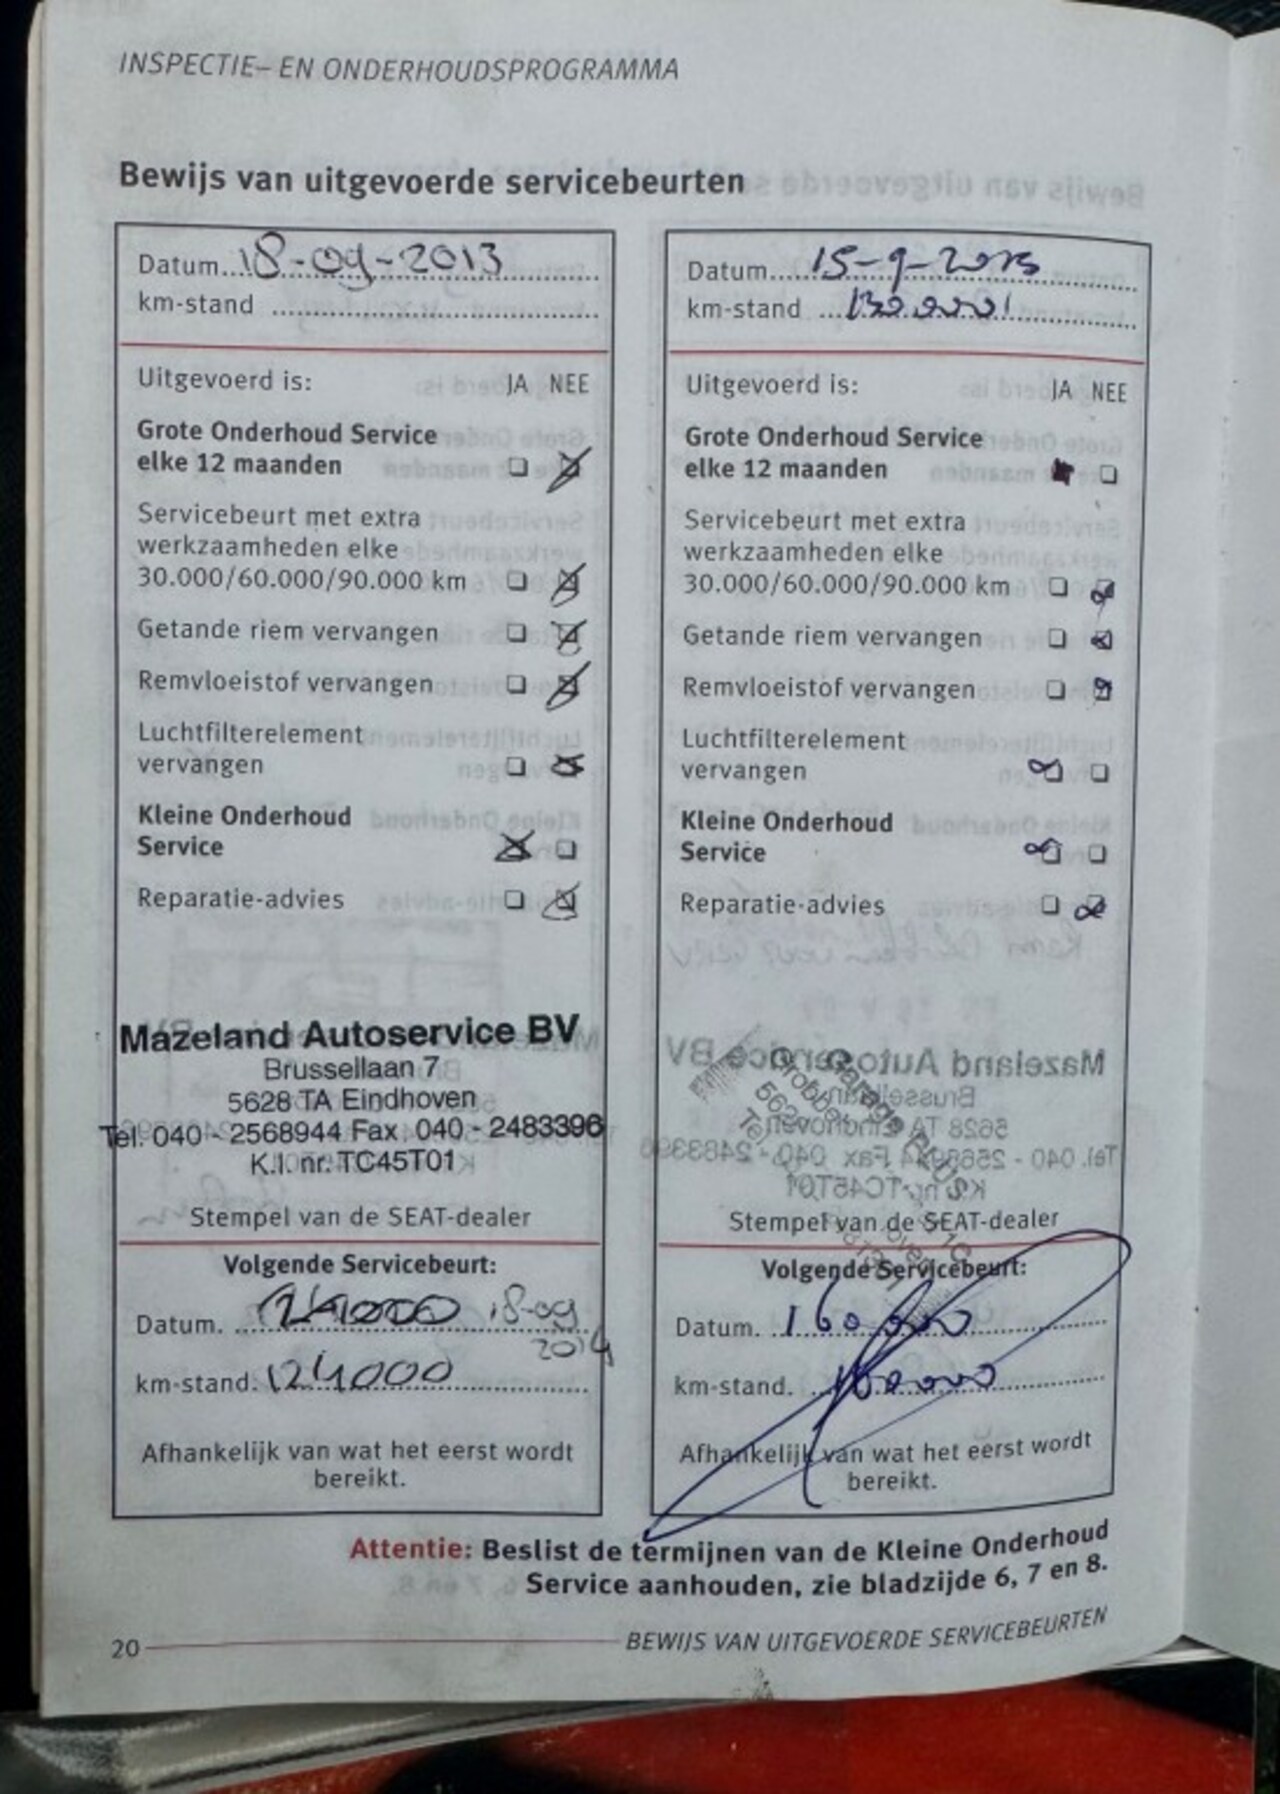 INSPECTIE– EN ONDERHOUDSPROGRAMMA
Bewijs van uitgevoerde servicebeurten
Datum 18-09-2013
km-stand
Uitgevoerd is: JA NEE
Grote Onderhoud Service
elke 12 maanden
Servicebeurt met extra
werkzaamheden elke
30.000/60.000/90.000 km
Getande riem vervangen
Remvloeistof vervangen
Luchtfilterelement
vervangen
Kleine Onderhoud
Service
Reparatie-advies
Mazeland Autoservice BV
Brussellaan 7
5628 TA Eindhoven
Tel. 040 - 2568944 Fax 040 - 2483396
K.I. nr. TC45T01
Stempel van de SEAT-dealer
Volgende Servicebeurt:
Datum. 18-09
2014
km-stand. 124000
Afhankelijk van wat het eerst wordt
bereikt.
Datum 15-9-2015
km-stand
Uitgevoerd is: JA NEE
Grote Onderhoud Service
elke 12 maanden
Servicebeurt met extra
werkzaamheden elke
30.000/60.000/90.000 km
Getande riem vervangen
Remvloeistof vervangen
Luchtfilterelement
vervangen
Kleine Onderhoud
Service
Reparatie-advies
Garage
Stempel van de SEAT-dealer
Volgende Servicebeurt:
Datum. 160000
km-stand.
Afhankelijk van wat het eerst wordt
bereikt.
Attentie: Beslist de termijnen van de Kleine Onderhoud
Service aanhouden, zie bladzijde 6, 7 en 8.
20 BEWIJS VAN UITGEVOERDE SERVICEBEURTEN